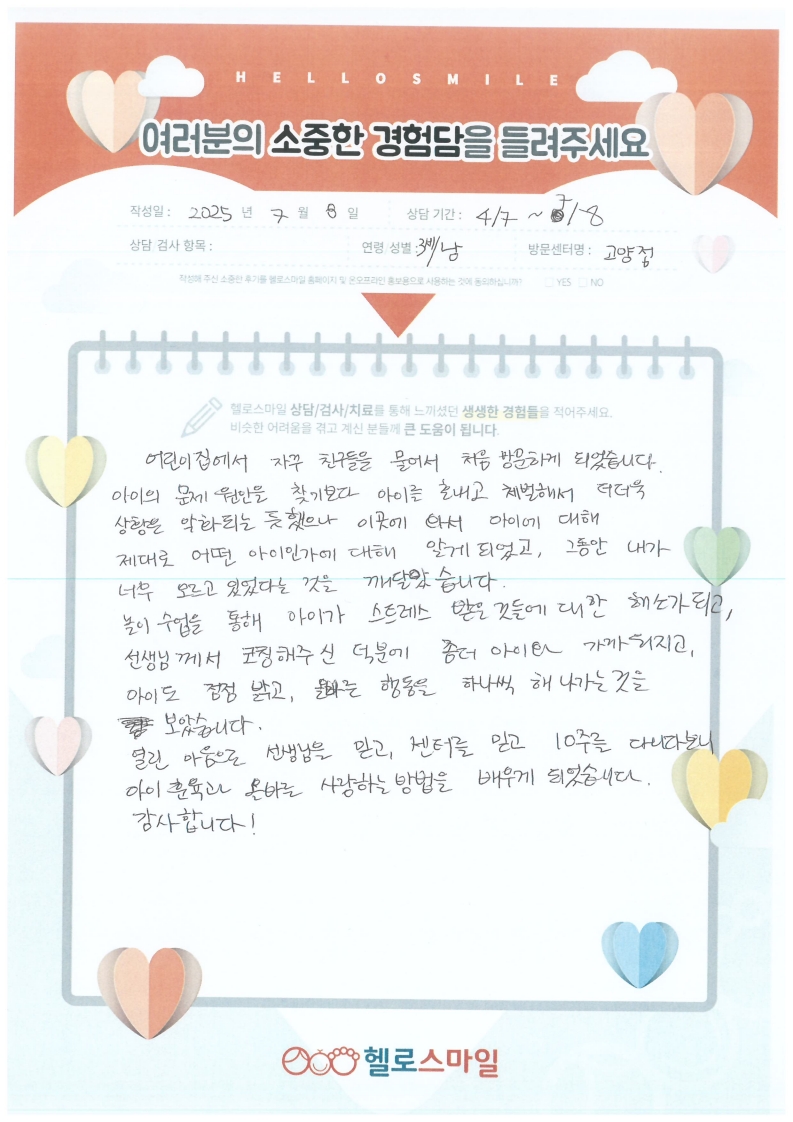 HELLOSMILE
여러분의 소중한 경험담을 들려주세요
작성일 : 2025 년 7 월 8 일 상담 기간 : 4/7 ~ 7/8
상담 검사 항목 : 연령/성별 : 3세/남 방문센터명 : 고양점
작성해 주신 소중한 후기를 헬로스마일 홈페이지 및 온오프라인 홍보용으로 사용하는 것에 동의하십니까? YES NO
헬로스마일 상담/검사/치료를 통해 느끼셨던 생생한 경험들을 적어주세요.
비슷한 어려움을 겪고 계신 분들께 큰 도움이 됩니다.
어린이집에서 자꾸 친구들을 물어서 처음 방문하게 되었습니다.
아이의 문제 원인을 찾기보다 아이를 혼내고 체벌해서 더더욱
상황은 악화되는 듯 했으나 이곳에 와서 아이에 대해
제대로 어떤 아이인가에 대해 알게 되었고, 그동안 내가
너무 모르고 있었다는 것을 깨달았습니다.
놀이 수업을 통해 아이가 스트레스 받은 것들에 대한 해소가 되고,
선생님께서 코칭해주신 덕분에 좀더 아이와 가까워지고,
아이도 점점 밝고, 올바른 행동을 하나씩 해 나가는 것을
보았습니다.
열린 마음으로 선생님을 믿고, 센터를 믿고 10주를 다니다보니
아이 훈육과 올바른 사랑하는 방법을 배우게 되었습니다.
감사합니다!
헬로스마일